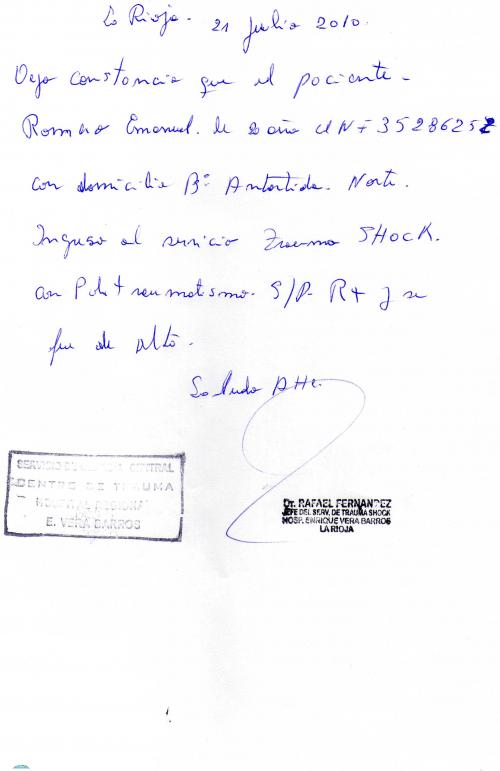 La Rioja. 21 Julio 2010.
Dejo constancia que el paciente.
Romero Emanuel. de 20 año N 35286252
con domicilio Bº Antartida. Norte.
Ingreso al servicio Trauma SHOCK.
con Politraumatismo. S/P. R+ y se
fue de Alta.
Saludo Atte.
SERVICIO DE CENTRAL
CENTRO DE TRAUMA
HOSPITAL REGIONAL
E. VERA BARROS
Dr. RAFAEL FERNANDEZ
JEFE DEL SERV. DE TRAUMA SHOCK
HOSP. ENRIQUE VERA BARROS
LA RIOJA